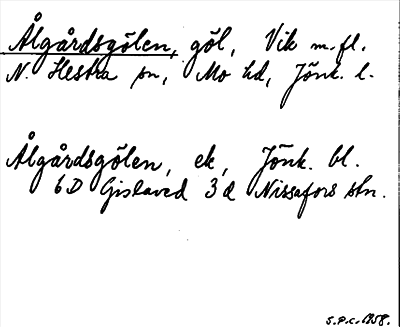 Ålgårdsgölen, göl, Vik m.fl.
N. Hestra sn, Mo hd, Jönk. l.
Ålgårdsgölen, ek, Jönk. bl.
6D Gislaved 3d Nissafors stn.
S.P.C. 1958.